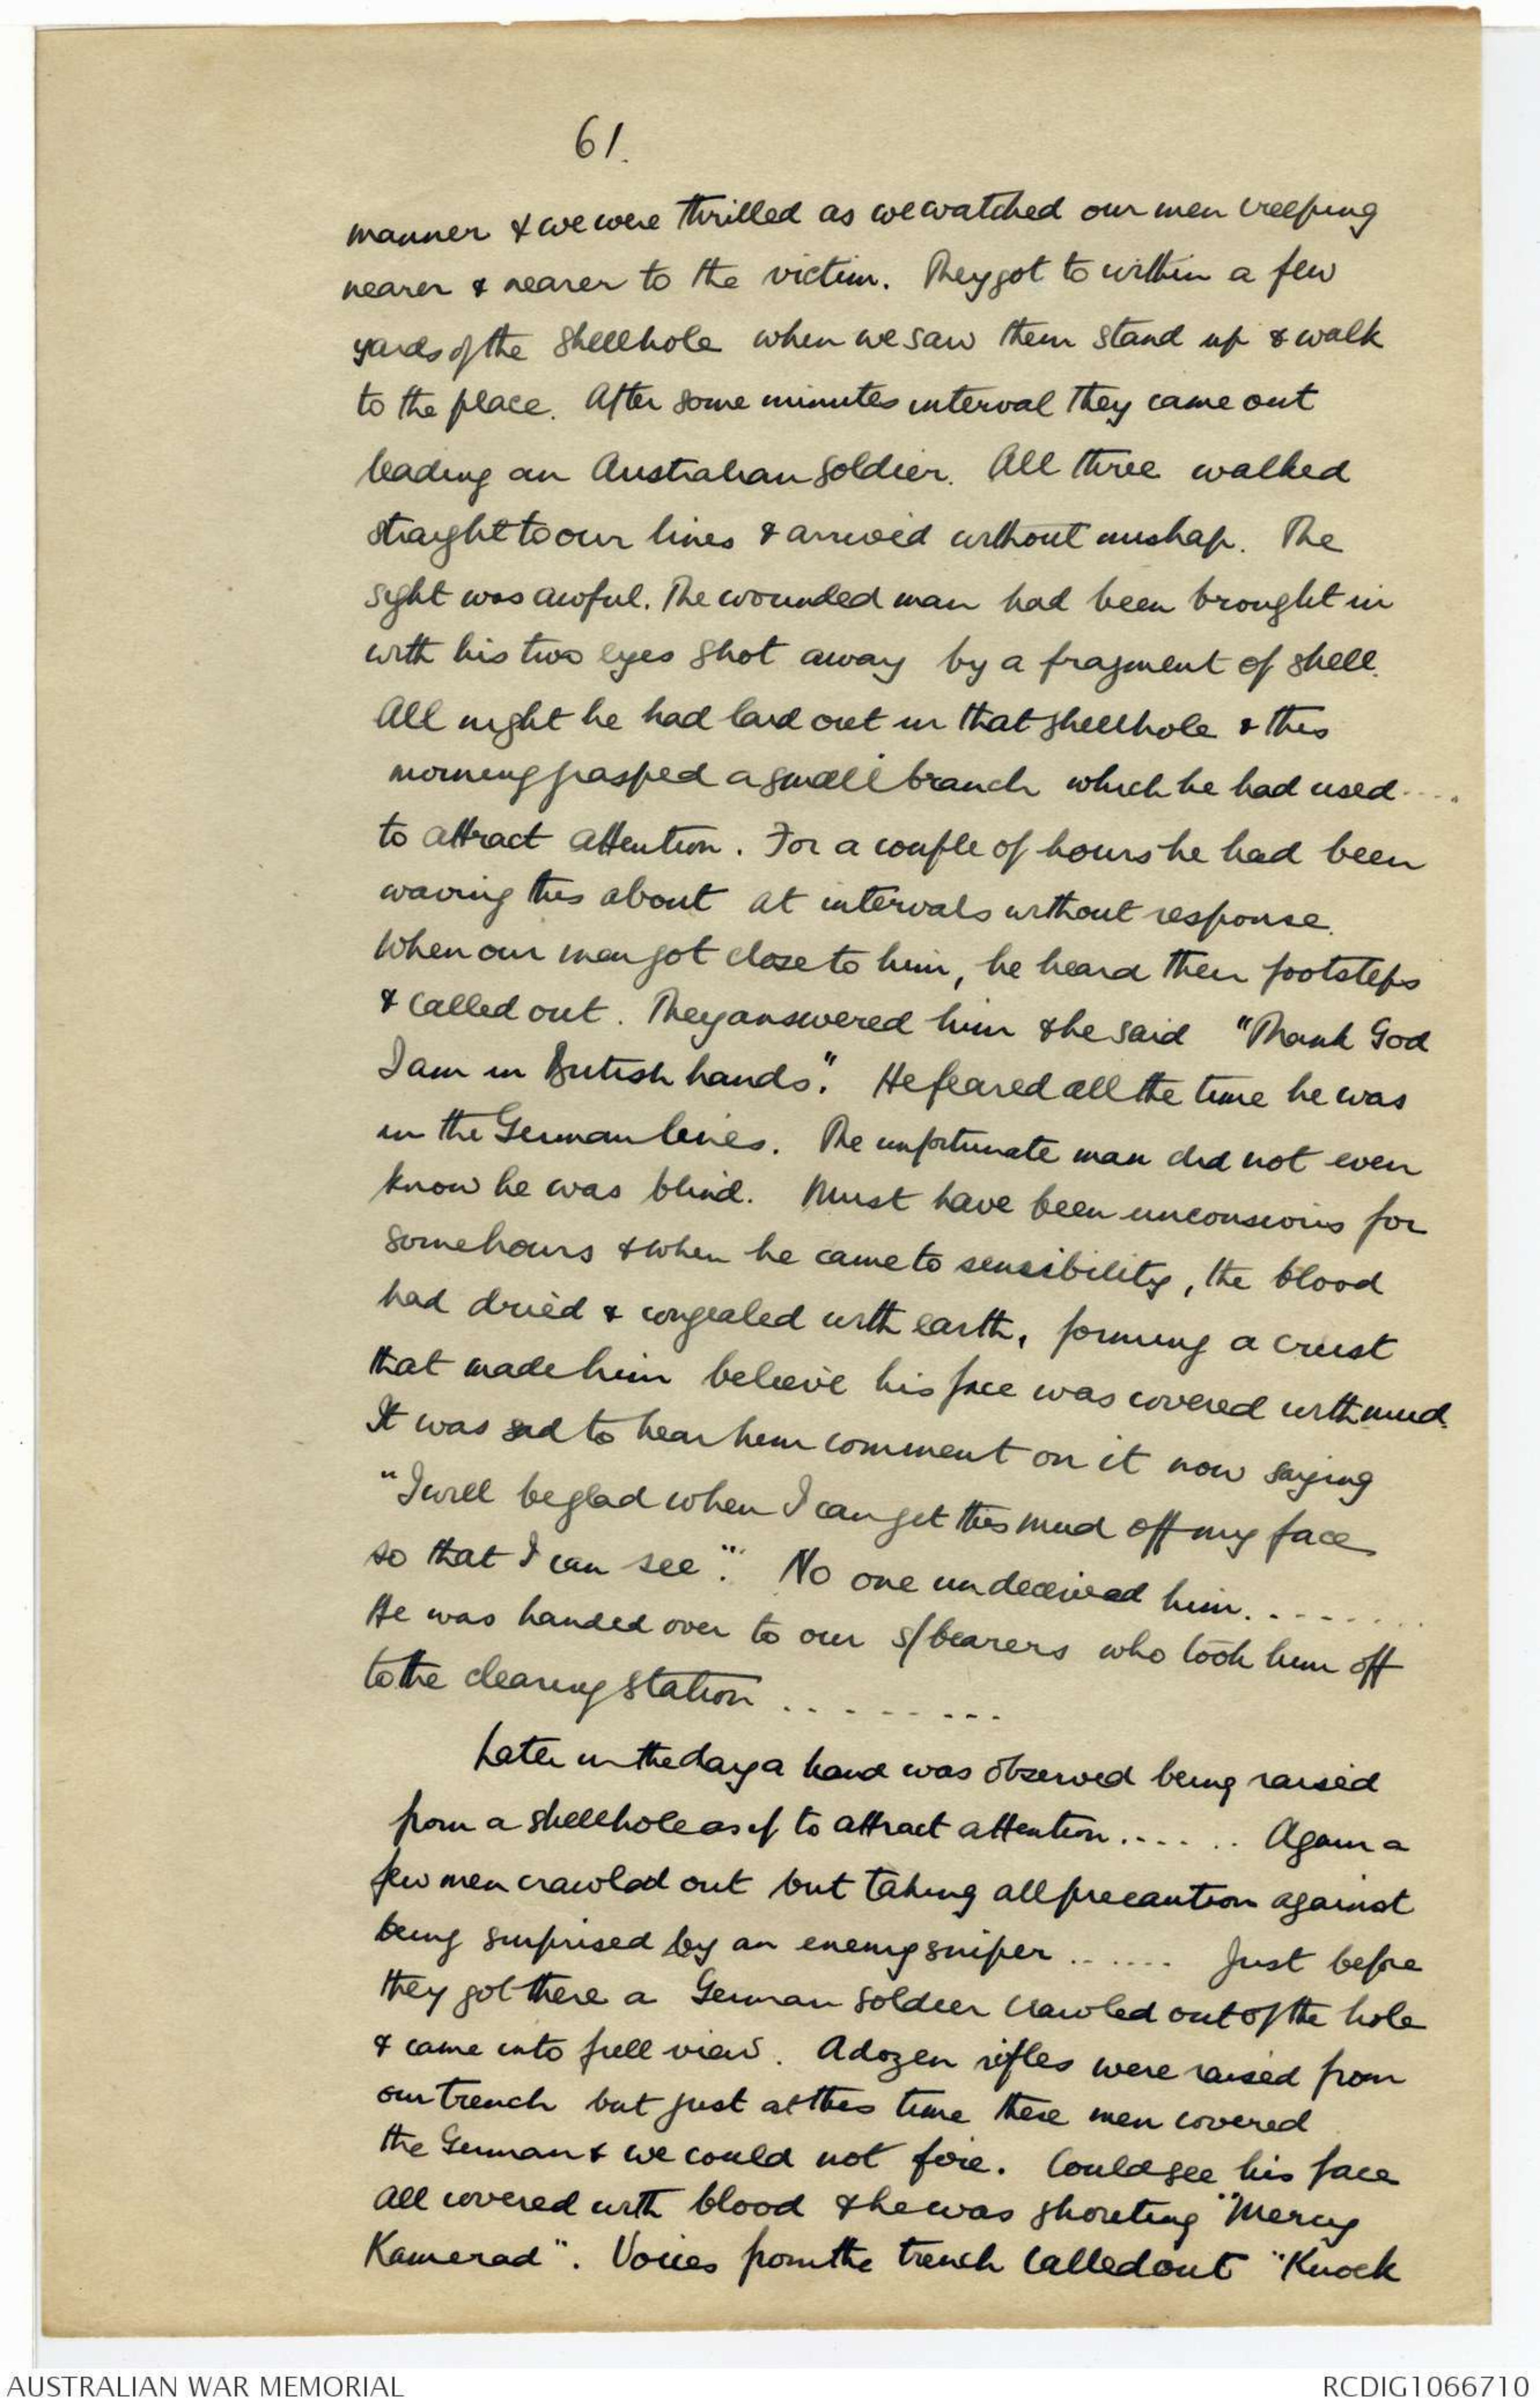 61.
manner & we were thrilled as we watched our men creeping
nearer & nearer to the victim. They got to within a few
yards of the shellhole when we saw them stand up & walk
to the place. After some minutes interval they came out
leading an Australian soldier. All three walked
straight to our lines & arrived without mishap. The
sight was awful. The wounded man had been brought in
with his two eyes shot away by a fragment of shell.
All night he had laid out in that shellhole & this
morning grasped a small branch which he had used ....
to attract attention. For a couple of hours he had been
waving this about at intervals without response.
When our men got close to him, he heard their footsteps
& called out. They answered him & he said "Thank God
I am in British hands." He feared all the time he was
in the German lines. The unfortunate man did not even
know he was blind. Must have been unconscious for
some hours & when he came to sensibility, the blood
had dried & congealed with earth, forming a crust
that made him believe his face was covered with mud.
It was sad to hear him comment on it now saying
"I will be glad when I can get this mud off my face
so that I can see". No one undeceived him. ........
He was handed over to our s/bearers who took him off
to the clearing station .........
Later in the day a hand was observed being raised
from a shellhole as if to attract attention ...... Again a
few men crawled out but taking all precaution against
being surprised by an enemy sniper ...... Just before
they got there a German soldier crawled out of the hole
& came into full view. A dozen rifles were raised from
our trench but just at this time these men covered
the German & we could not fire. Could see his face
all covered with blood & he was shouting "Mercy
Kamerad". Voices from the trench called out "Knock
AUSTRALIAN WAR MEMORIAL
RCDIG1066710